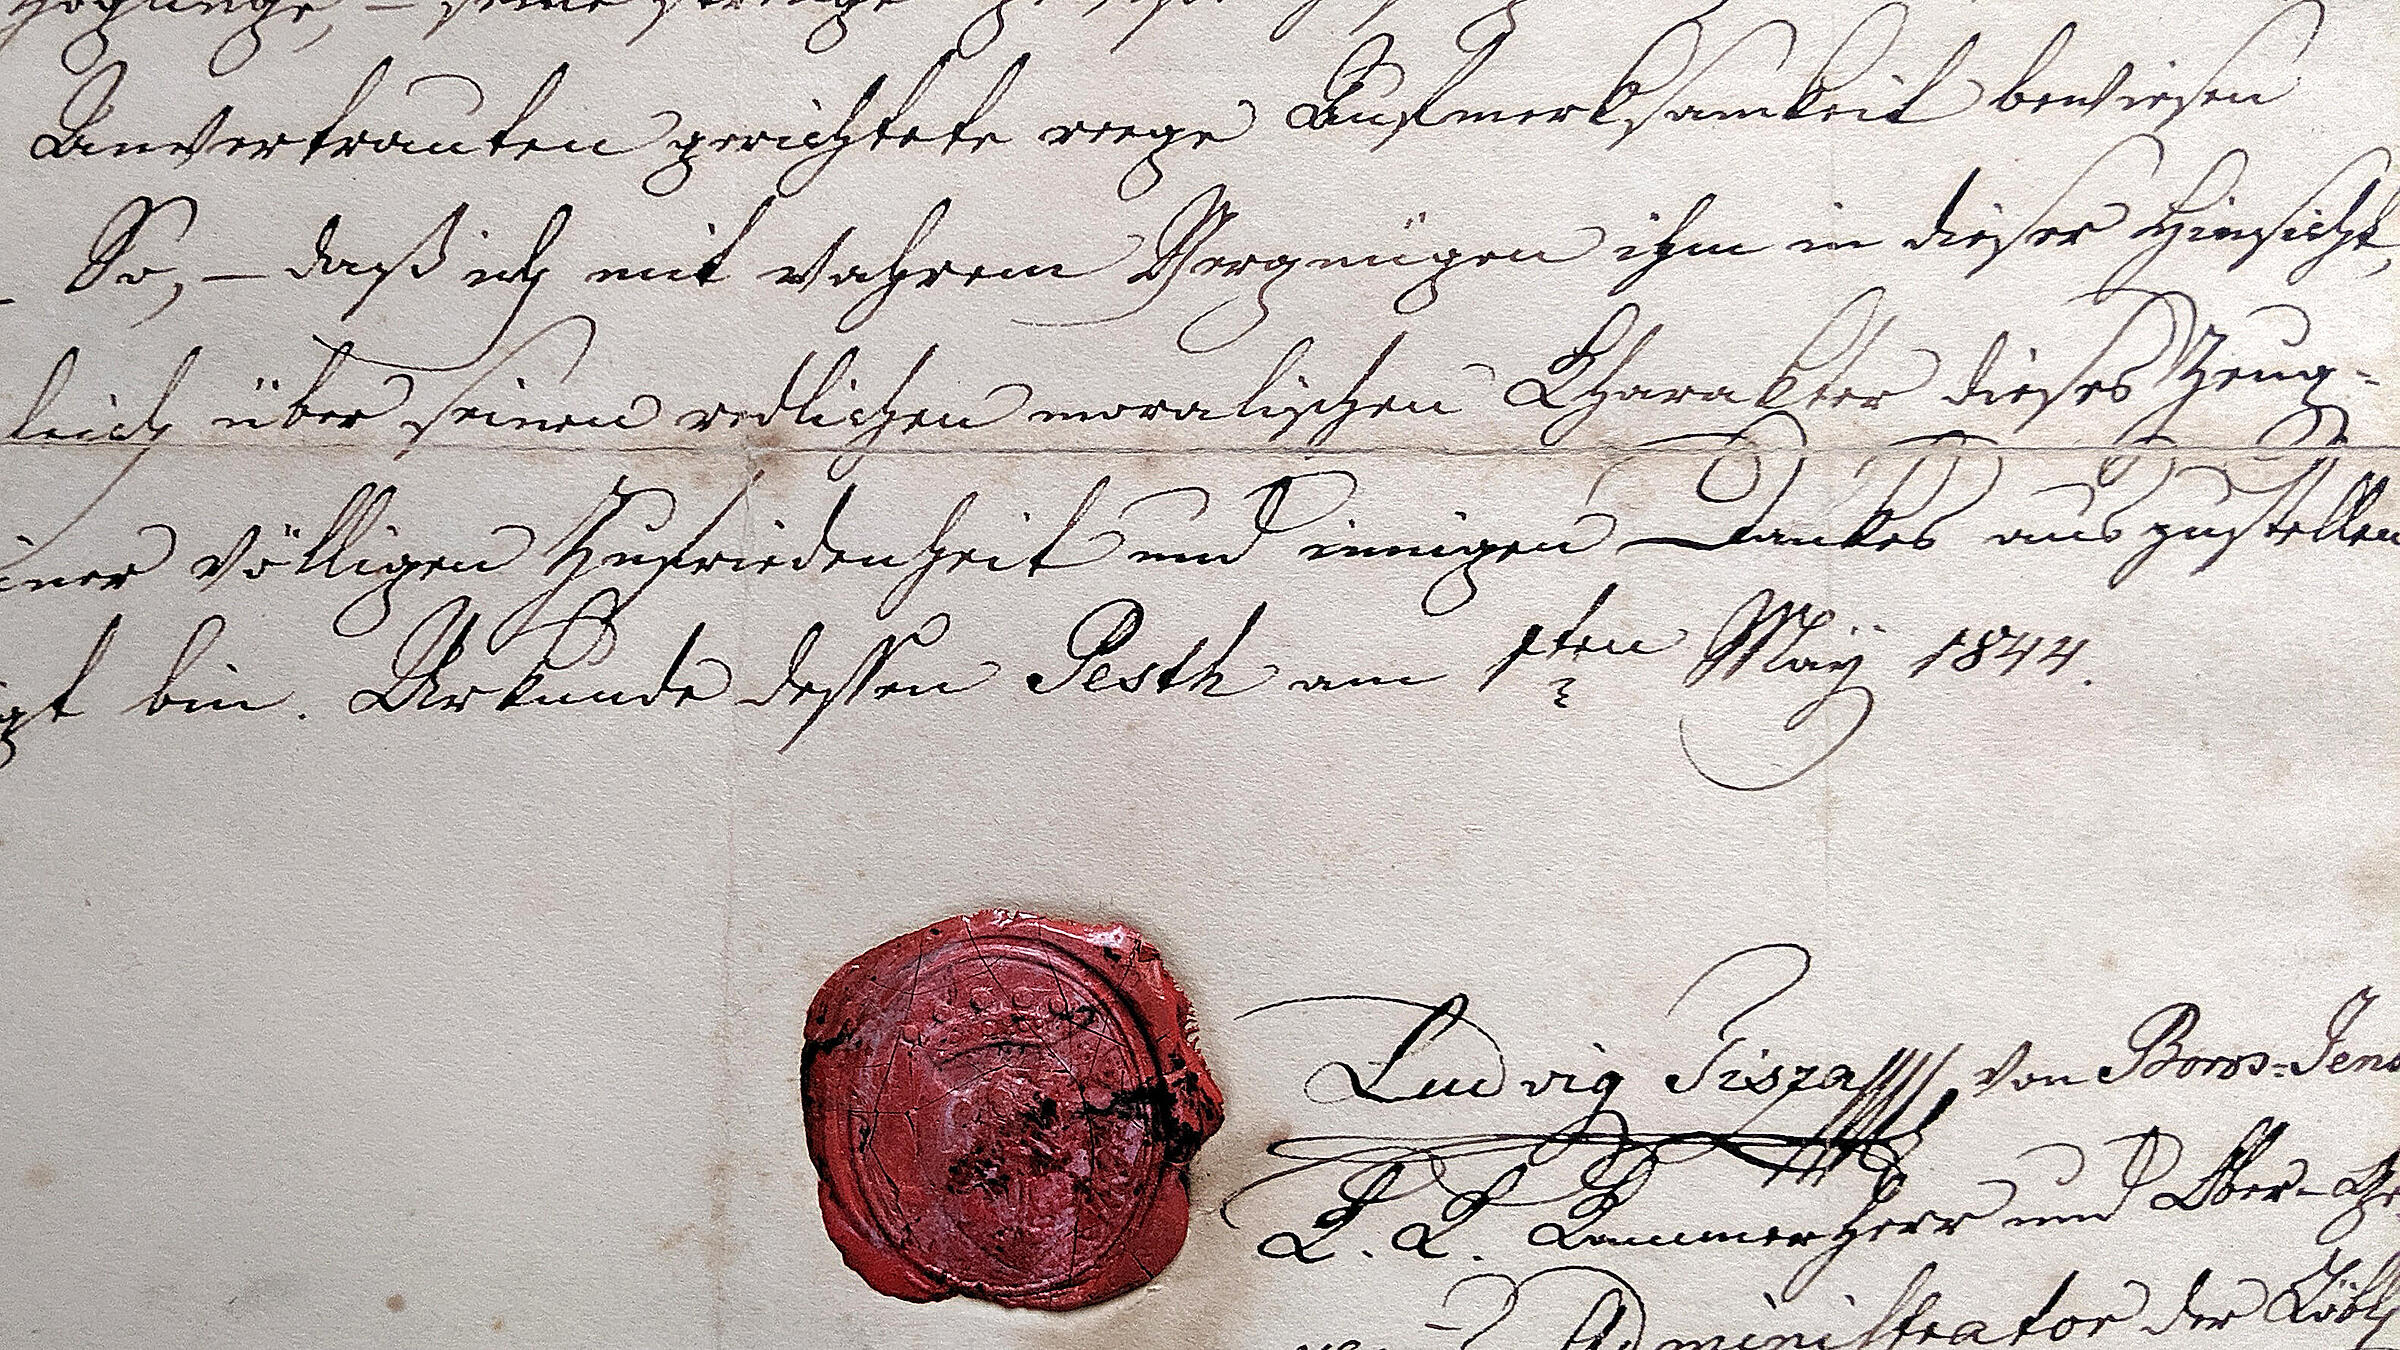 Zöglinge, – seine strenge
Anvertrauten gerichtete rege Aufmerksamkeit bewiesen
So, – daß ich mit wahrem Vergnügen ihm in dieser Hinsicht,
leich über seinen redlichen moralischen Charakter dieses Zeug-
iner völligen Zufriedenheit und innigen Dankes auszustellen
igt bin. Urkunde dessen Pesth am 1ten May 1844.
Ludvig Tisza von Boros-Jenö
K. K. Kammerherr und Ober-Ge
Administrator der Löbl